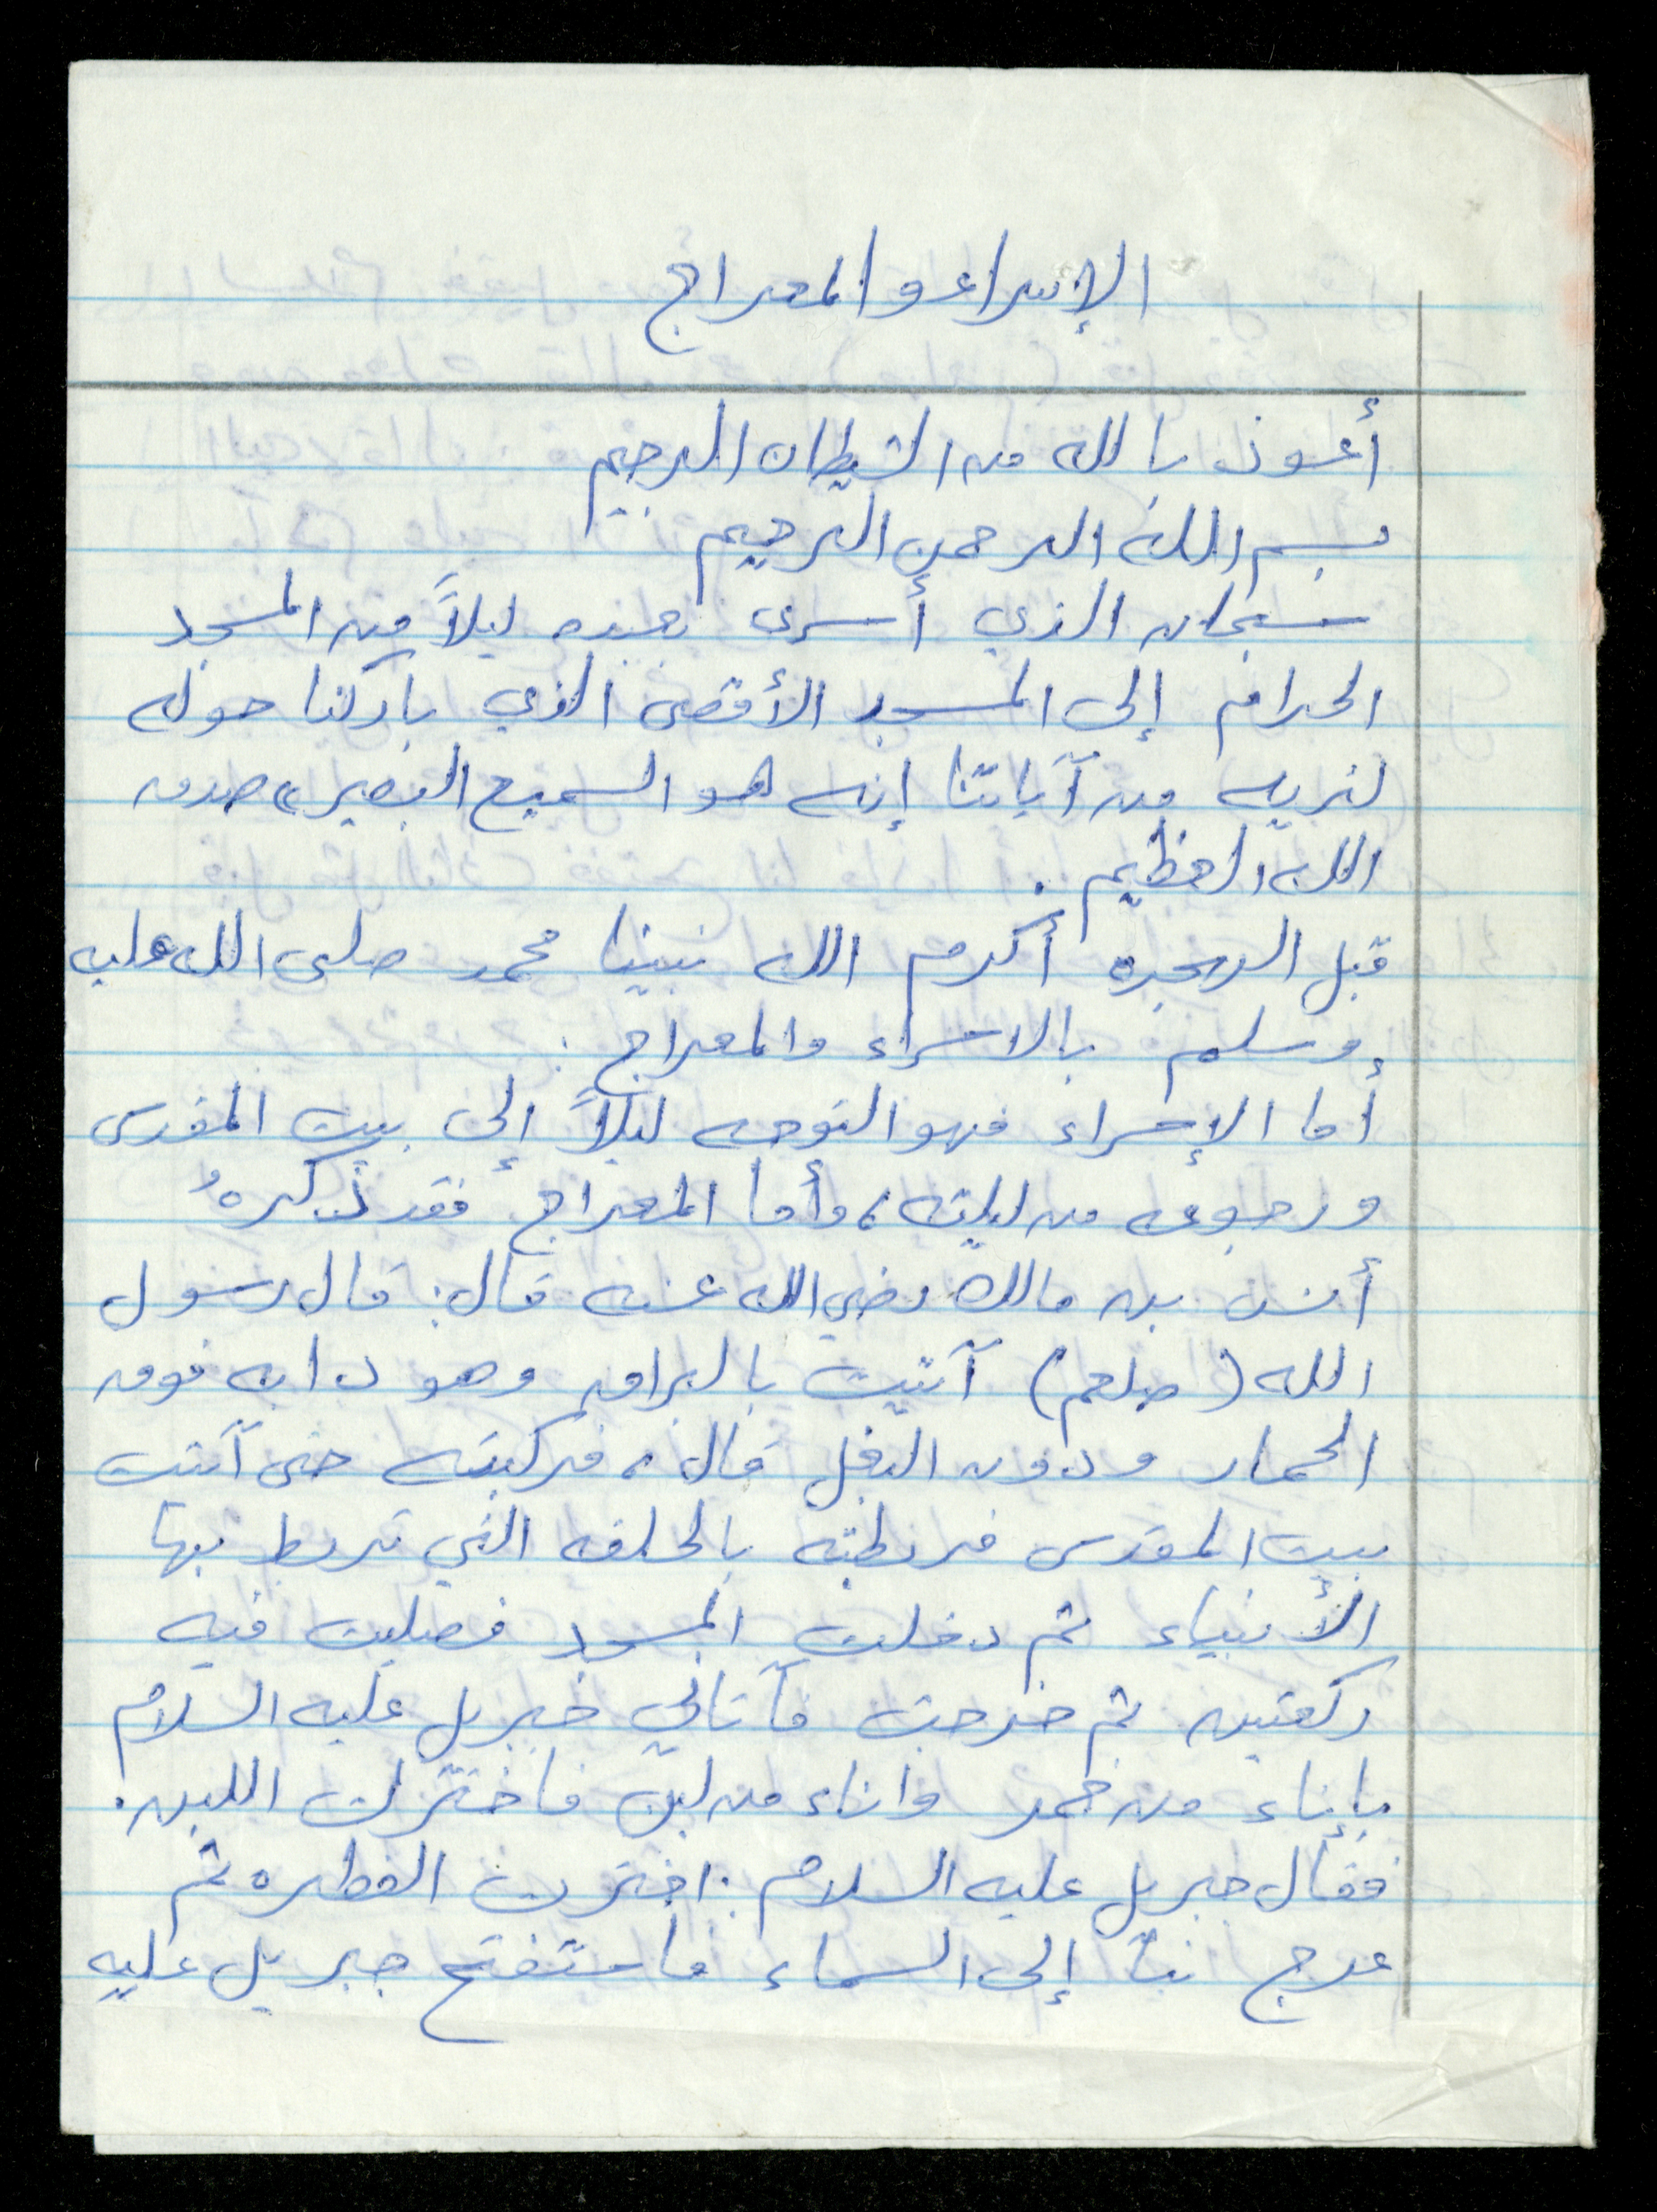 الإسراء والمعراج
أعوذ بالله من الشيطان الرجيم
بسم الله الرحمن الرحيم
سبحان الذي أسرى بعبده ليلاً من المسجد
الحرام إلى المسجد الأقصى الذي باركنا حوله
لنريه من آياتنا إنه هو السميع البصير» صدق
الله العظيم .
قبل الهجره أكرم الله نبينا محمد صلى الله عليه
وسلم بالاسراء والمعراج .
أما الإسراء فهو التوجه ليلاً إلى بيت المقدس
ورجوعه من ليلته، وأما المعراج فقد ذكرهُ
أنس بن مالك رضي الله عنه قال: قال رسول
الله (صلعم) آتيت بالبراق وهو دابه فوق
الحمار ودون البغل قال، فركبته حتى آتيت
بيت المقدس فربطته بالحلقه التي تربط بها
الأنبياء ثم دخلت المسجد فصليت فيه
ركعتين ثم خرجت فآتاني جبريل عليه السلام
بإناء من خمر واناء من لبن فاخترت اللبن .
فقال جبريل عليه السلام : اخترت الفطره ثم
عرج بنا إلى السماء فاستفتح جبريل عليه